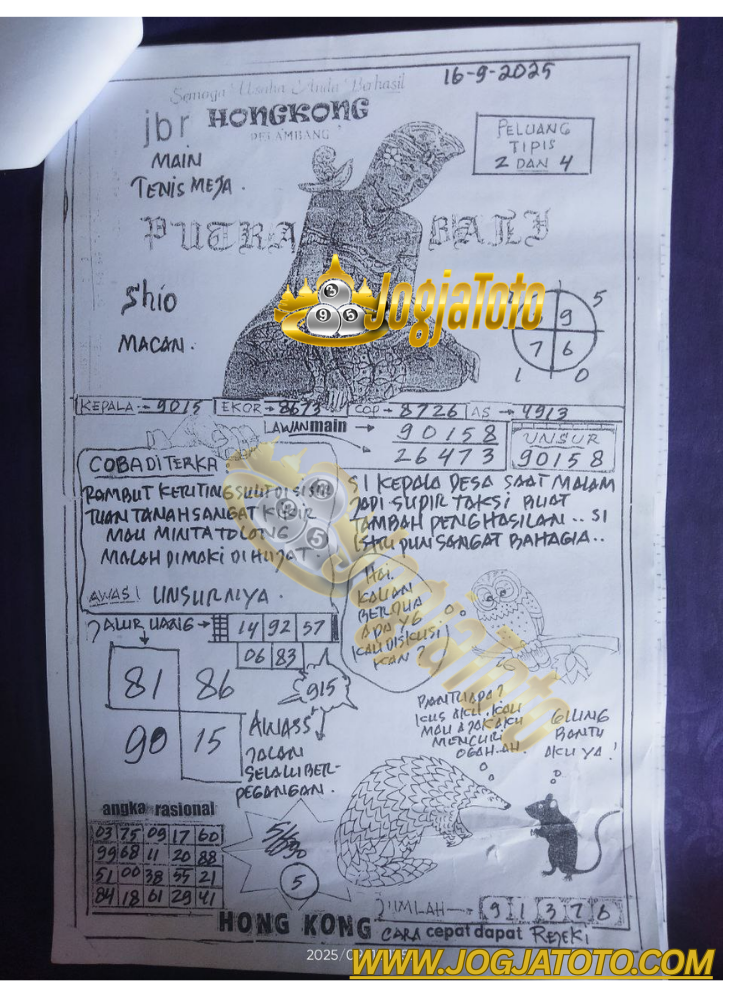 Semoga Usaha Anda Berhasil
16-9-2025
jbr HONGKONG
PELAMBANG
PELUANG
TIPIS
2 DAN 4
MAIN
TENIS MEJA.
PUTRA BALI
Shio
MACAN.
JogjaToto
5
9
7 6
1 0
KEPALA → 9015 EKOR → 8673 COP → 8726 AS → 4913
LAWAN main → 90158
26473
UNSUR
90158
COBA DITERKA:
RAMBUT KERITING SULIT DI SISIR
TUAN TANAH SANGAT KIKIR
MAU MINTA TOLONG
MALAH DIMAKI DI HUJAT
AWAS! UNSURNIYA.
SI KEPALA DESA SAAT MALAM
JADI SUPIR TAKSI BUAT
TAMBAH PENGHASILAN.. SI
ISTRI PUN SANGAT BAHAGIA..
JALUR UANG → 14 92 57
06 83
HAI.
KALIAN
BERDUA
ADA YG
KALI DISKUSI
KAN?
81 86
90 15
915
AWASS
JALAN
SELALU BER-
PEGANGAN.
BANTU APA?
KUS AKU. KALI
MAU AJAK AKU
MENCURI
OGAH. AH.
GLING
BANTU
AKU YA!
angka rasional
03 75 09 17 60
99 68 11 20 88
51 00 38 55 21
84 18 61 29 41
5
JUMLAH → 9 1 3 7 6
HONG KONG CARA cepat dapat REJEKI
WWW.JOGJATOTO.COM